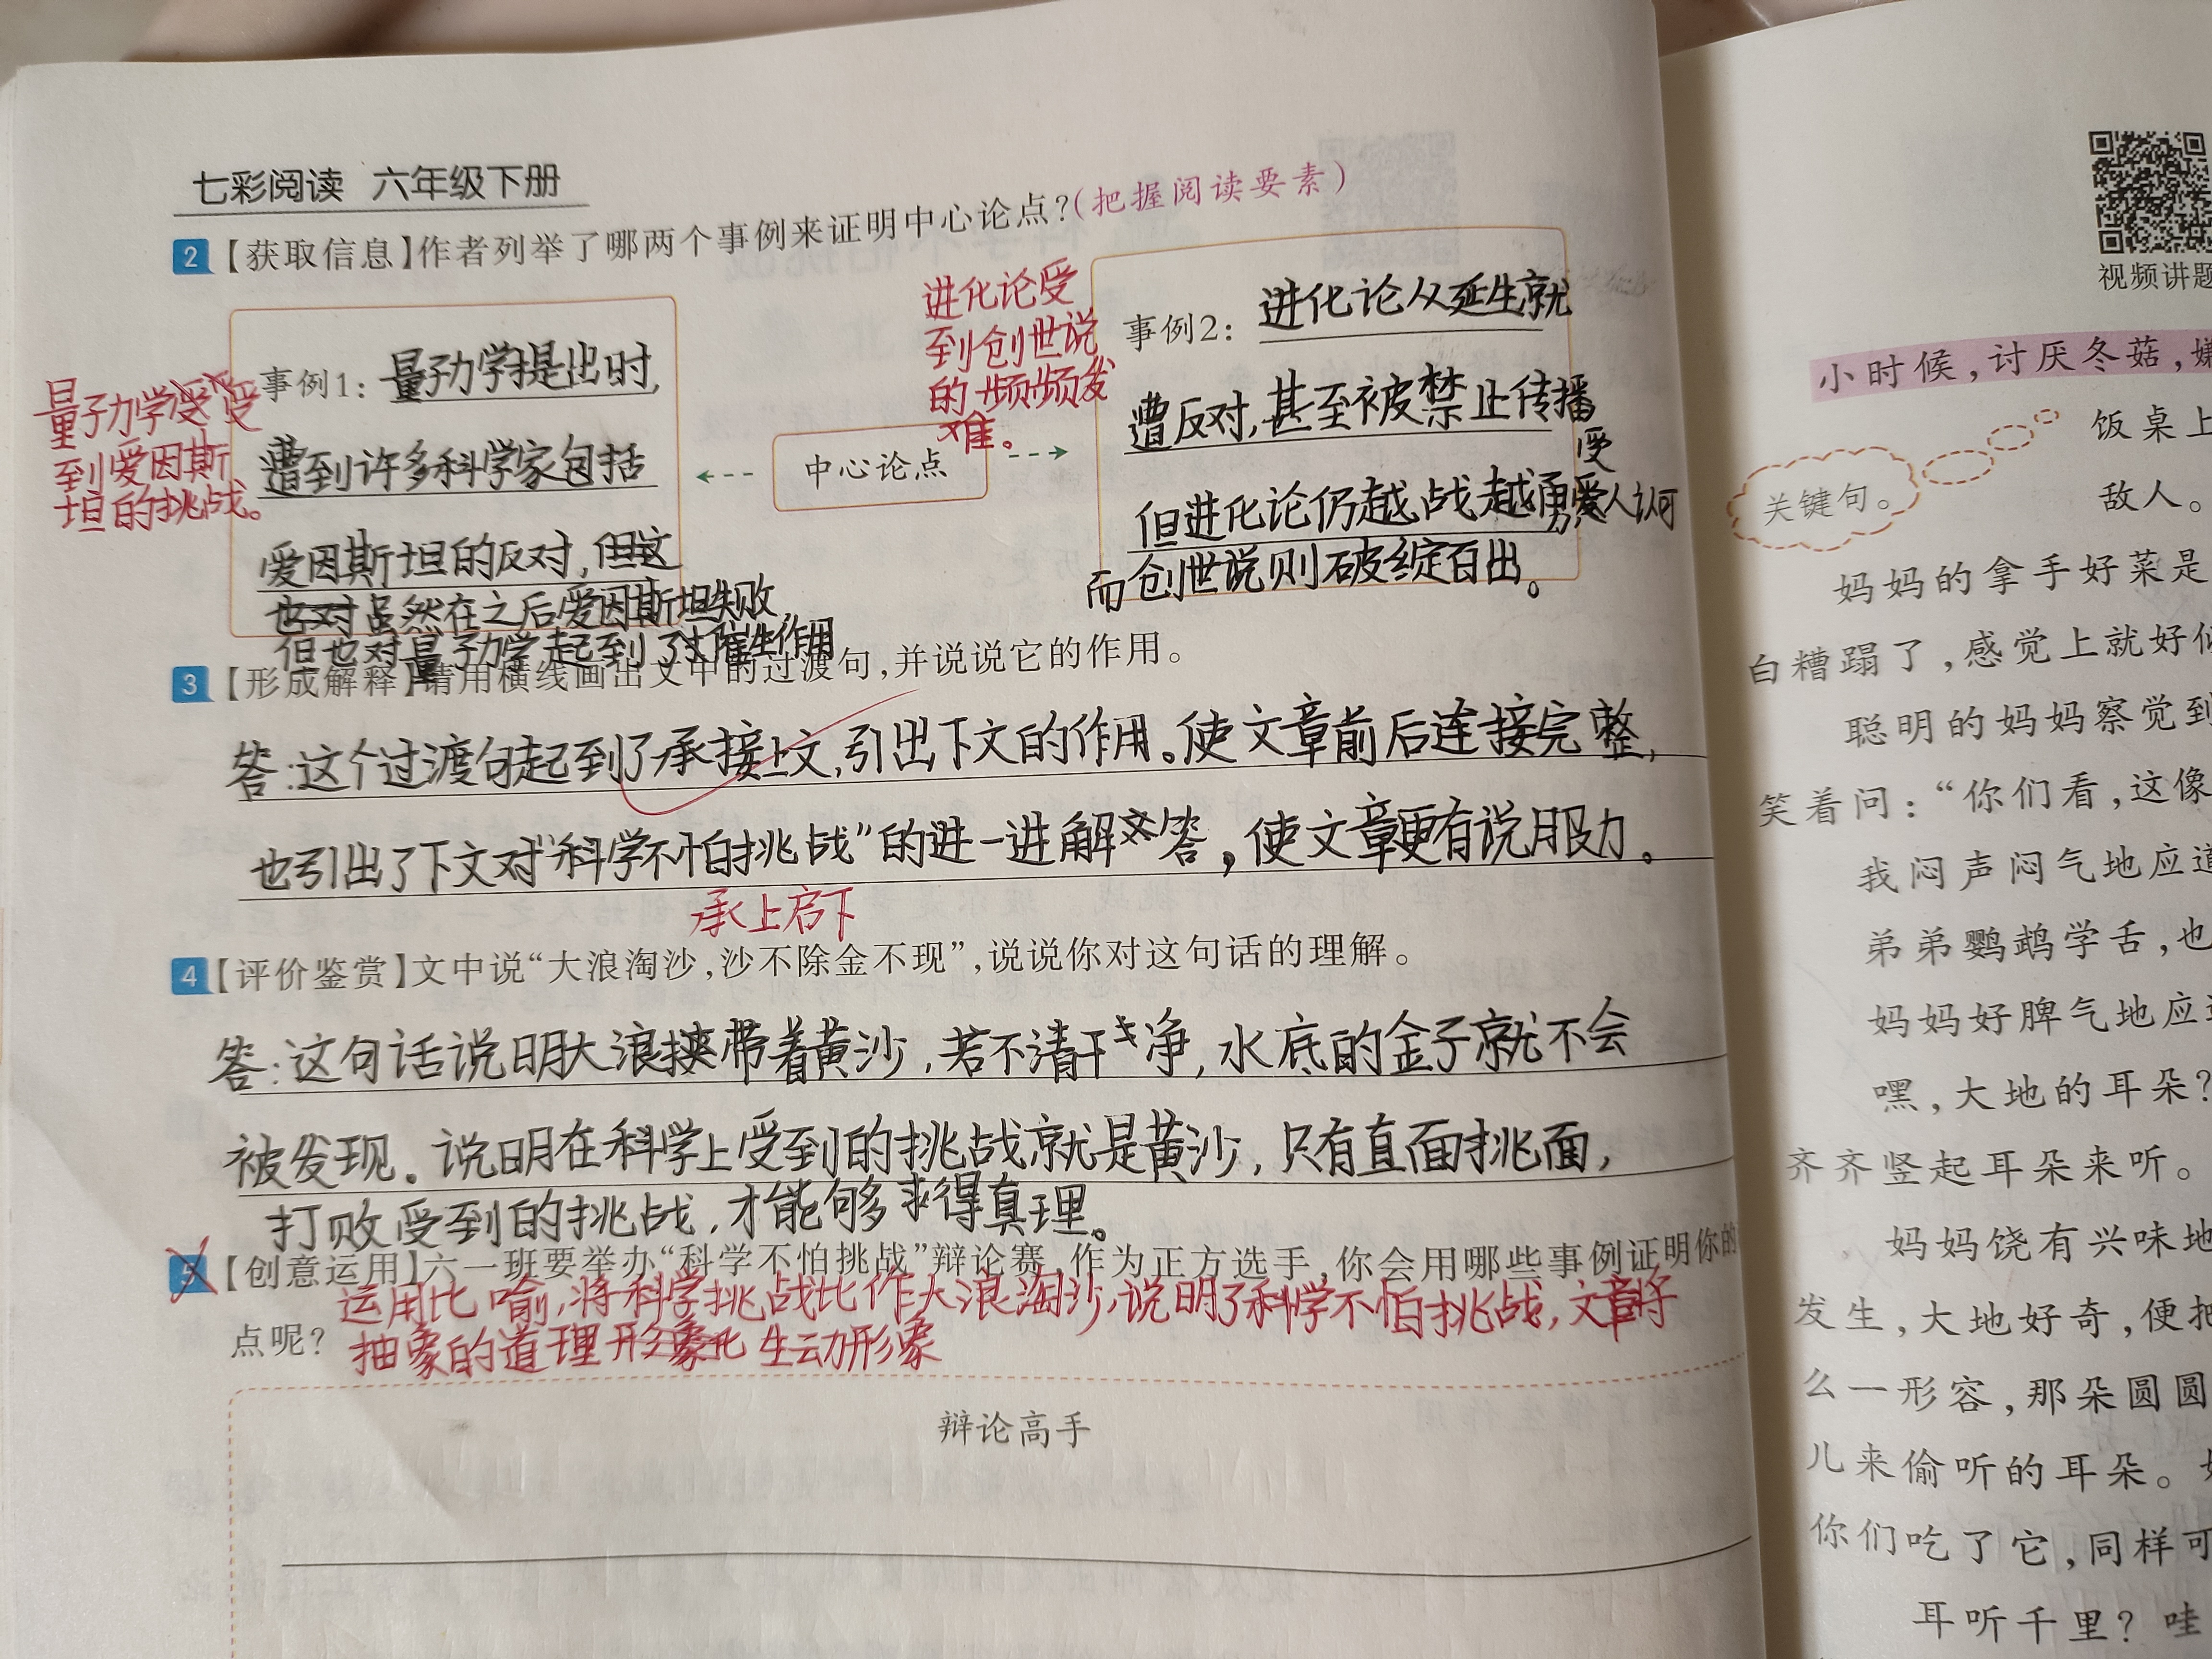 七彩阅读 六年级下册
2【获取信息】作者列举了哪两个事例来证明中心论点?(把握阅读要素)
量子力学受
到爱因斯
坦的挑战。
事例1:量子力学提出时,
遭到许多科学家包括
爱因斯坦的反对,但这
也对虽然在之后爱因斯坦失败,
但也对量子力学起到了催生作用
中心论点
进化论受
到创世说
的频频发
难。
事例2:进化论从延生就
遭反对,甚至被禁止传播
但进化论仍越战越勇受人认可
而创世说则破绽百出。
3【形成解释】请用横线画出文中的过渡句,并说说它的作用。
答:这个过渡句起到了承接上文,引出下文的作用。使文章前后连接完整,
也引出了下文对“科学不怕挑战”的进一进解答,使文章更有说服力。
承上启下
4【评价鉴赏】文中说“大浪淘沙,沙不除金不现”,说说你对这句话的理解。
答:这句话说明大浪挟带着黄沙,若不清干净,水底的金子就不会
被发现。说明在科学上受到的挑战就是黄沙,只有直面挑面,
打败受到的挑战,才能够求得真理。
5【创意运用】六一班要举办“科学不怕挑战”辩论赛,作为正方选手,你会用哪些事例证明你的
点呢?
运用比喻,将科学挑战比作大浪淘沙,说明了科学不怕挑战,文章将
抽象的道理形象化 生动形象
辩论高手
视频讲题
小时候,讨厌冬菇,嫌
饭桌上
敌人。
关键句。
妈妈的拿手好菜是
白糟蹋了,感觉上就好似
聪明的妈妈察觉到
笑着问:“你们看,这像
我闷声闷气地应道
弟弟鹦鹉学舌,也
妈妈好脾气地应道
嘿,大地的耳朵?
齐齐竖起耳朵来听。
妈妈饶有兴味地
发生,大地好奇,便把
么一形容,那朵圆圆
儿来偷听的耳朵。
你们吃了它,同样可
耳听千里?哇